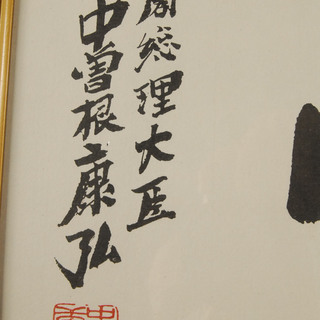 閣総理大臣
中曽根康弘